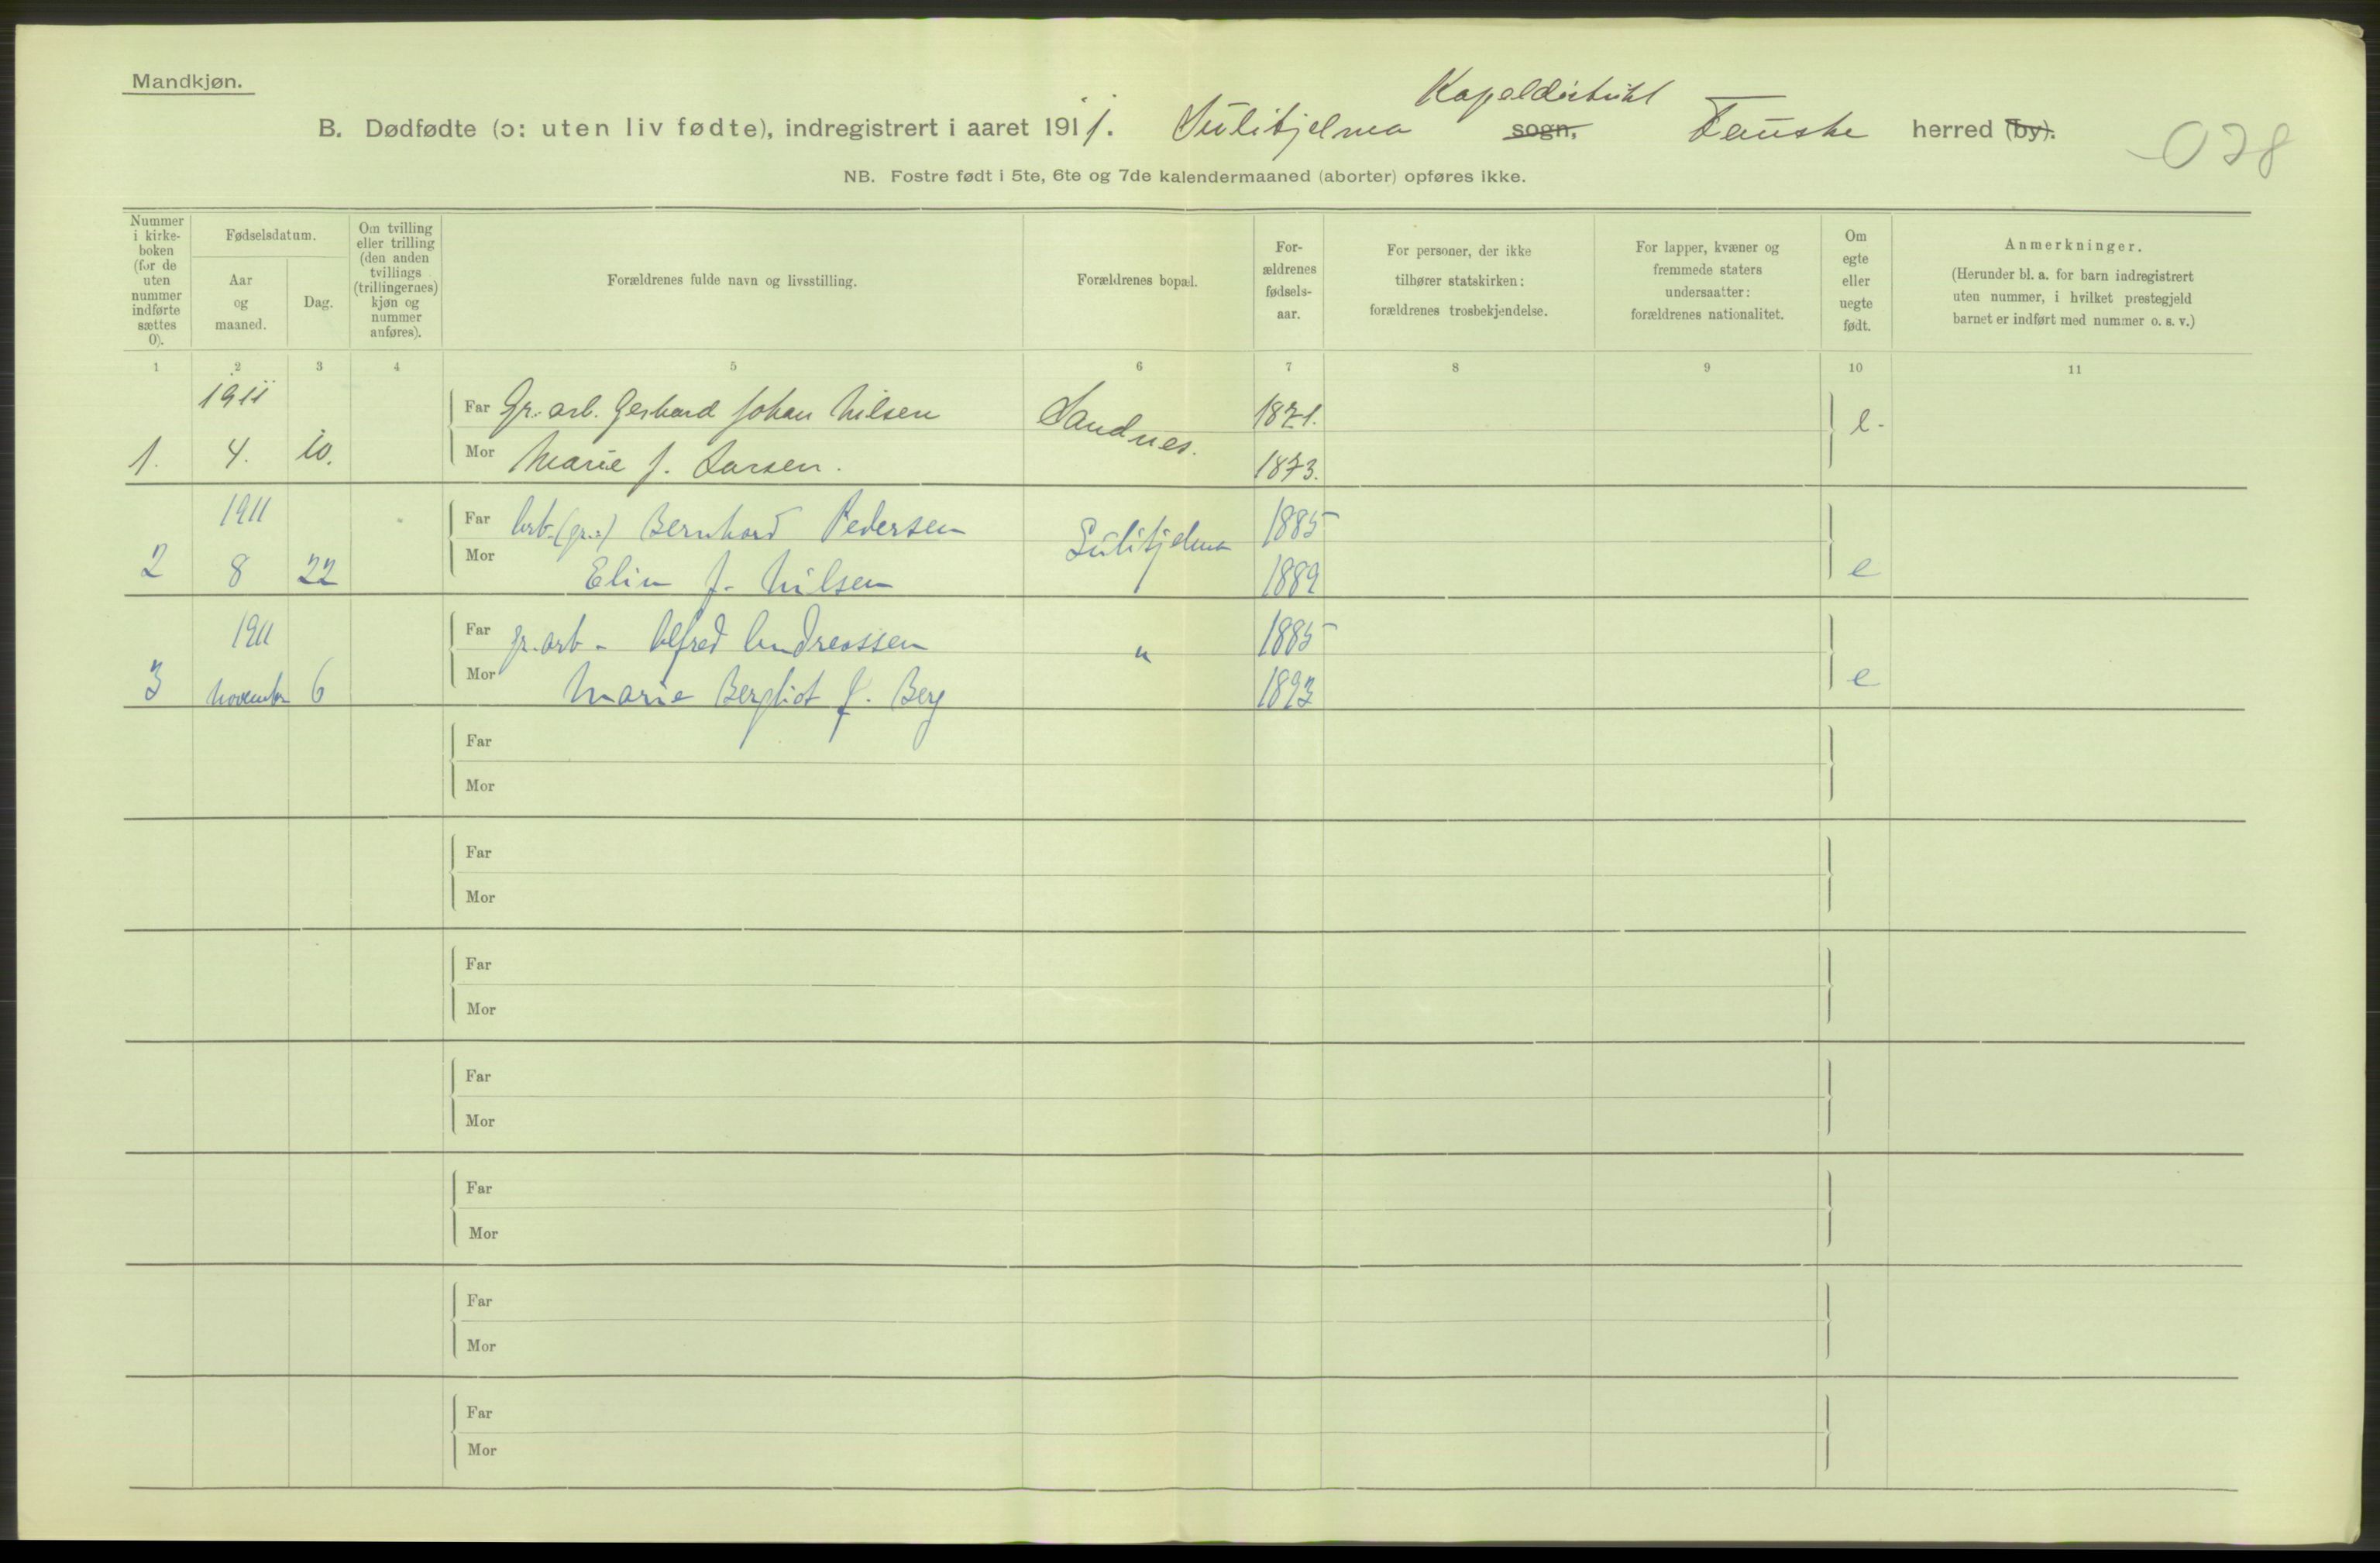 Mandkjøn.
Kapeldistrikt
B. Dødfødte (ɔ: uten liv fødte), indregistrert i aaret 1911. Sulitjelma sogn, Fauske herred (by).
028
NB. Fostre født i 5te, 6te og 7de kalendermaaned (aborter) opføres ikke.
Nummer i kirke-boken (for de uten nummer indførte sættes 0).
Fødselsdatum.
Aar og maaned.
Dag.
Om tvilling eller trilling (den anden tvillings (trillingernes) kjøn og nummer anføres).
Forældrenes fulde navn og livsstilling.
Forældrenes bopæl.
For-ældrenes fødsels-aar.
For personer, der ikke tilhører statskirken: forældrenes trosbekjendelse.
For lapper, kvæner og fremmede staters undersaatter: forældrenes nationalitet.
Om egte eller uegte født.
Anmerkninger.
(Herunder bl. a. for barn indregistrert uten nummer, i hvilket prestegjeld barnet er indført med nummer o. s. v.)
1 2 3 4 5 6 7 8 9 10 11
1911 Far Gr. arb. Gerhard Johan Nilsen Sandnes. 1871. e.
1. 4. 10. Mor Marie f. Larsen. 1873.
1911 Far Arb. (gr.) Bernhard Pedersen Sulitjelma 1885
2 8 22 Mor Elin f. Nilsen 1889 e
1911 Far gr. arb - Alfred Andreassen " 1885
3 November 6 Mor Marie Bergliot f. Berg 1893 e
Far
Mor
Far
Mor
Far
Mor
Far
Mor
Far
Mor
Far
Mor
Far
Mor